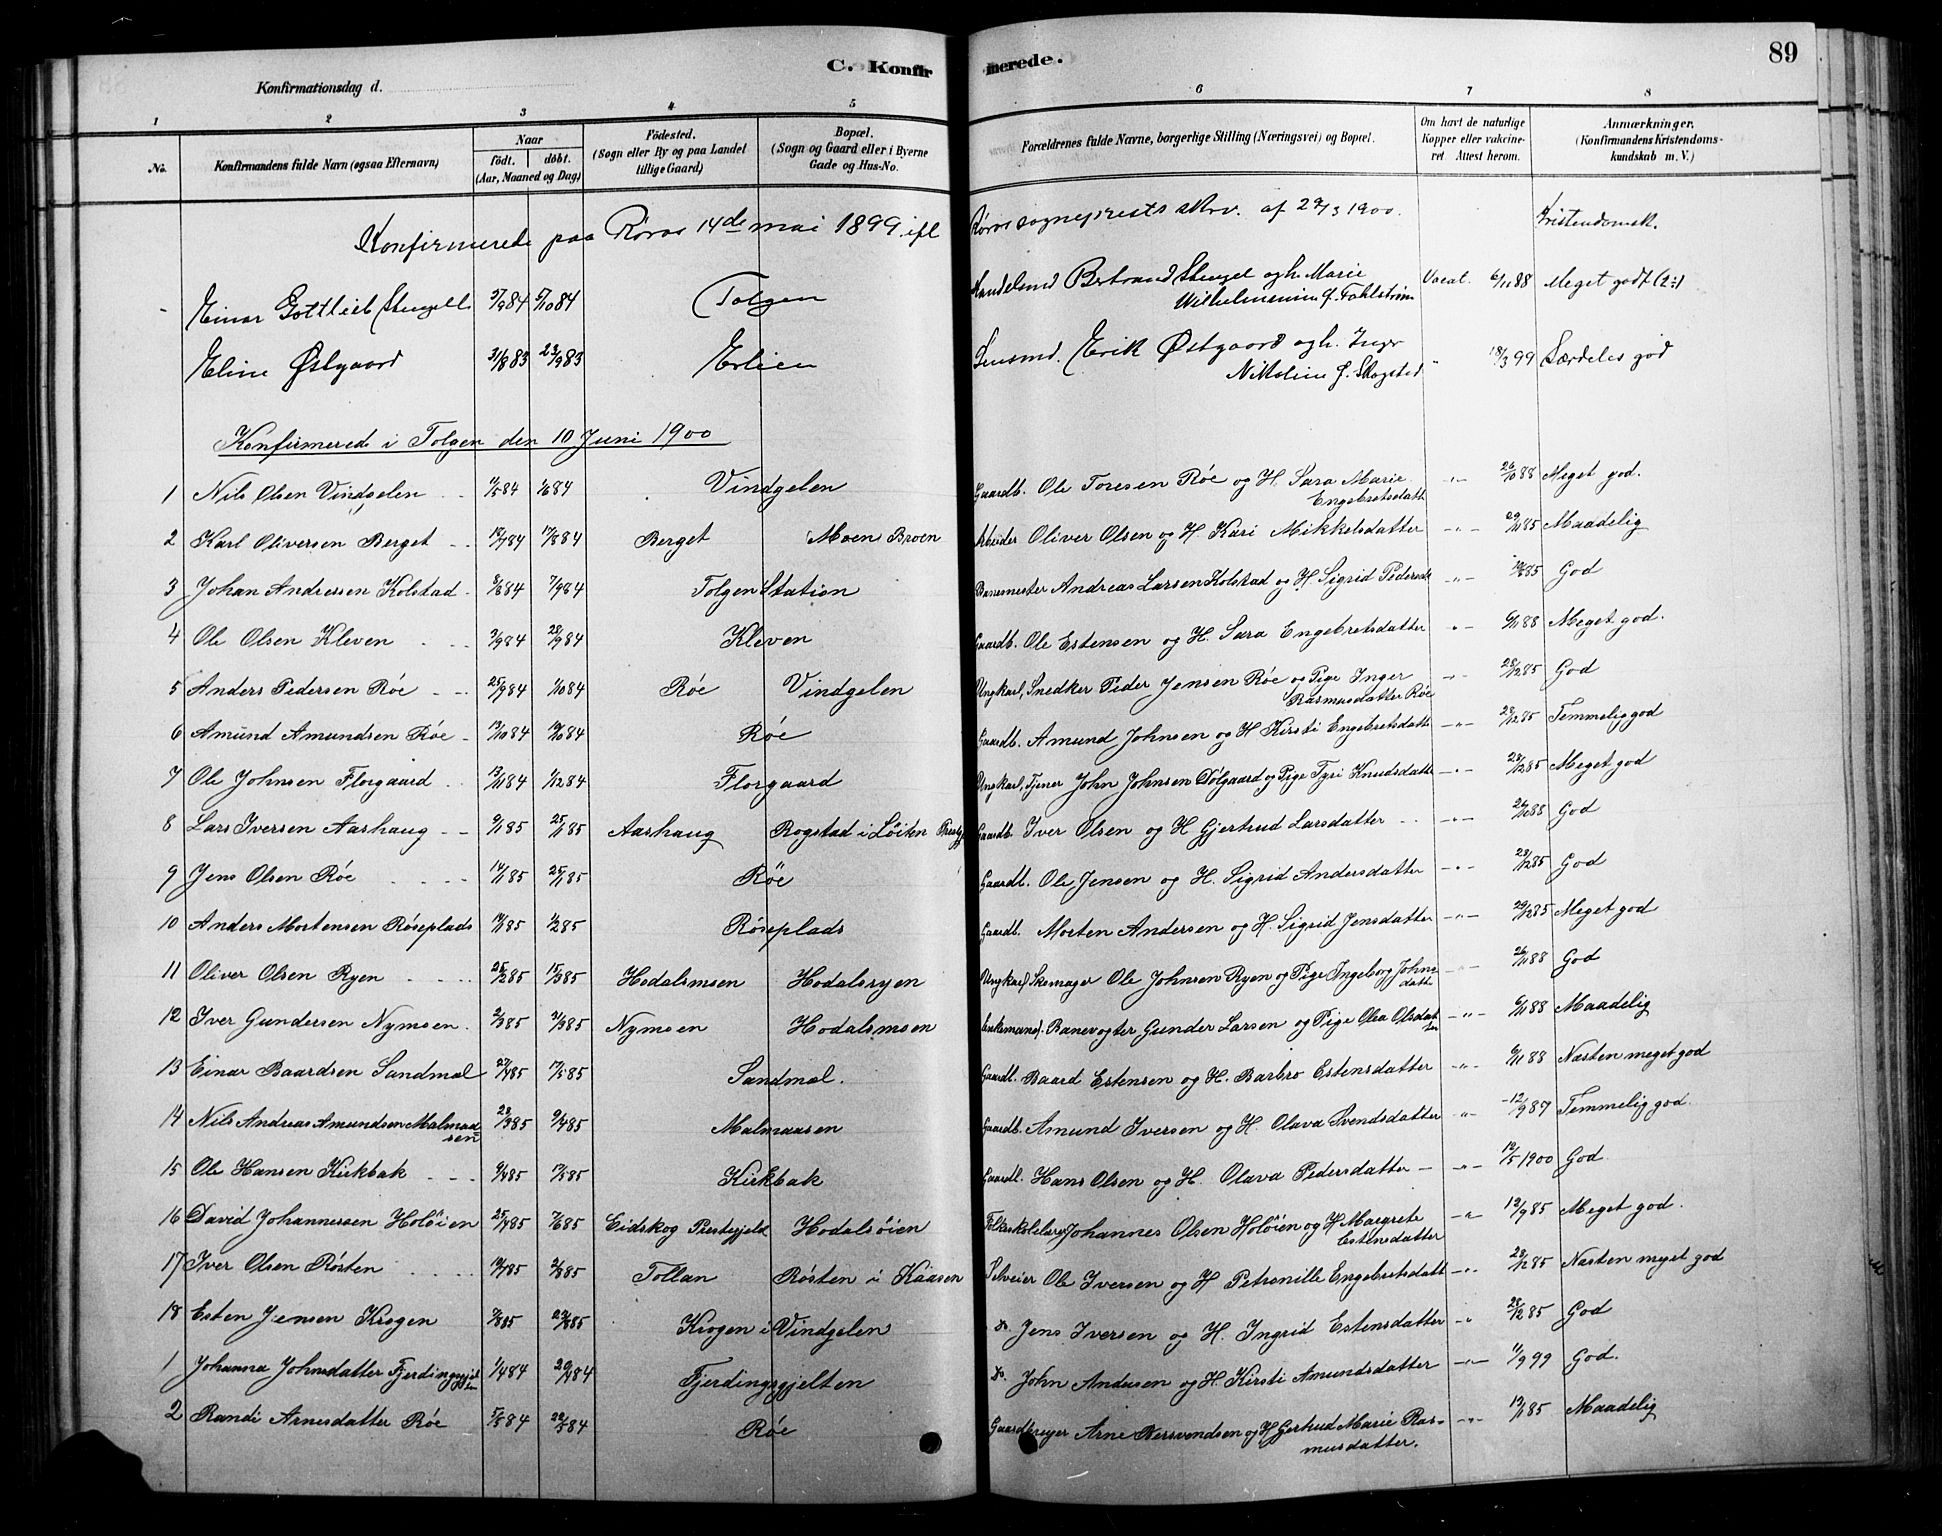 C. Konfirmerede. 89
Konfirmationsdag d.
1 2 3 4 5 6 7 8
No. Konfirmandens fulde Navn (ogsaa Efternavn) Naar födt. döbt. (Aar, Maaned og Dag) Födested. (Sogn eller By og paa Landet tillige Gaard) Bopæl. (Sogn og Gaard eller i Byerne Gade og Hus-No. Forældrenes fulde Navne, borgerlige Stilling (Næringsvei) og Bopæl. Om havt de naturlige Kopper eller vakcineret. Attest herom. Anmærkninger. (Konfirmandens Kristendomskundskab m. V.)
Konfirmerede paa Røros 14de mai 1899 ifl Røros sogneprests skrv. af 29/3 1900. Kristendomsk.
Einar Gottlieb Stengell 5/10 84 Tolgen Handelsmd Bertrand Stengel og h. Marie Wilhelmine f. Fahlstrøm Vacat. 6/11 88 Meget godt (2:)
Eline Østgaard 31/8 83 23/9 83 Erlien Lensmd. Erik Østgaard og h. Inger Nikoline f. Skogsted " 18/3 99 Særdeles god
Konfirmerede i Tolgen den 10 Juni 1900
1 Nils Olsen Vindgelen 84 84 Vindgelen Gaardb. Ole Toresen Røe og H. Sara Marie Engebretsdatt 26/10 88 Meget god.
2 Karl Oliversen Berget 84 17/8 84 Berget Moen Broen Arbeider Oliver Olsen og H. Kari Mikkelsdatter 29/11 85 Maadelig
3 Johan Andersen Kolstad 84 7/9 84 Tolgen Station Banemester Andreas Larsen Kolstad og H. Sigrid Pedersdt 85 God
4 Ole Olsen Kleven 3/9 84 28/9 84 Kleven Gaardb. Ole Estensen og H. Sara Engebretsdatter 6/11 88 Meget god.
5 Anders Pedersen Røe 25/9 84 1/10 84 Røe Vindgelen Ungkarl, Snedker Peder Jensen Røe og Pige Inger Rasmusdatter Røe 28/12 85 God
6 Amund Amundsen Røe 13/10 84 19/10 84 Røe Gaardb. Amund Johnsen og H Kirsti Engebretsdatt 28/12 85 Temmelig god
7 Ole Johnsen Florgaard 13/11 84 1/12 84 Florgaard Ungkarl, Tjener John Johnsen Dølgaard og Pige Tyri Knudsdatt 28/12 85 Meget god
8 Lars Iversen Aashaug 9/1 85 25/1 85 Aashaug Rogstad i Løiten Prestgj Gaardb. Iver Olsen og H Gjertrud Larsdatter 88 God
9 Jens Olsen Røe 14/1 85 25/1 85 Røe Gaardb. Ole Jensen og H. Sigrid Andersdatter 28/12 85 God
10 Anders Mortensen Røseplads 85 1/2 85 Røseplads Gaardb. Morten Andersen og H. Sigrid Jensdatter 29/12 85 Meget god
11 Oliver Olsen Ryen 25/2 85 15/3 85 Hodalsmoen Hodalsryen Ungkarl Skomager Ole Johnsen Ryen og Pige Ingeborg Johnsdatt 88 God
12 Iver Gundersen Nymoen 2/3 85 31/3 85 Nymoen Hodalsmoen Enkemand. Banevogter Gunder Larsen og Pige Olea Olsdatter 6/11 88 Maadelig
13 Einar Baardsen Sandmæl 27/4 85 17/5 85 Sandmæl. Gaardb. Baard Estensen og H. Barbro Estensdatter 6/11 88 Næsten meget god
14 Nils Andreas Amundsen Malmaasen 29/3 85 9/4 85 Malmaasen Gaardb. Amund Iversen og H. Olava Svendsdatter 12/9 87 Temmelig god.
15 Ole Hansen Kirkbak 9/4 85 17/5 85 Kirkbak Gaardb. Hans Olsen og H. Olava Pedersdatter 12/5 1900 God
16 David Johannessen Holöien 25/4 85 7/6 85 Eidskog Prestegjeld Hodalsöien Folkeskolelærer Johannes Olsen Holöien og H Margrete Estensdatter 12/9 85 Meget god.
17 Iver Olsen Røsten 85 2/8 85 Tollan Røsten i Kaasen Selveier Ole Iversen og H Petronille Engebretsdatt 28/12 85 Næsten meget god
18 Esten Jensen Krogen 85 23/8 85 Krogen i Vindgelen Do. Jens Iversen og H. Ingrid Estensdatter 28/12 85 God
1 Johanna Johnsdatter Fjerdingsgjelten 1/4 84 20/4 84 Fjerdingsgjelten Do. John Andersen og H. Kirsti Amundsdatter 11/9 99 God.
2 Randi Arnesdatter Røe 5/5 84 22/5 84 Røe Gaardbruger Arne Bersvendsen og H Gertrud Marie Rasmusdatter. 13/11 85 Maadelig